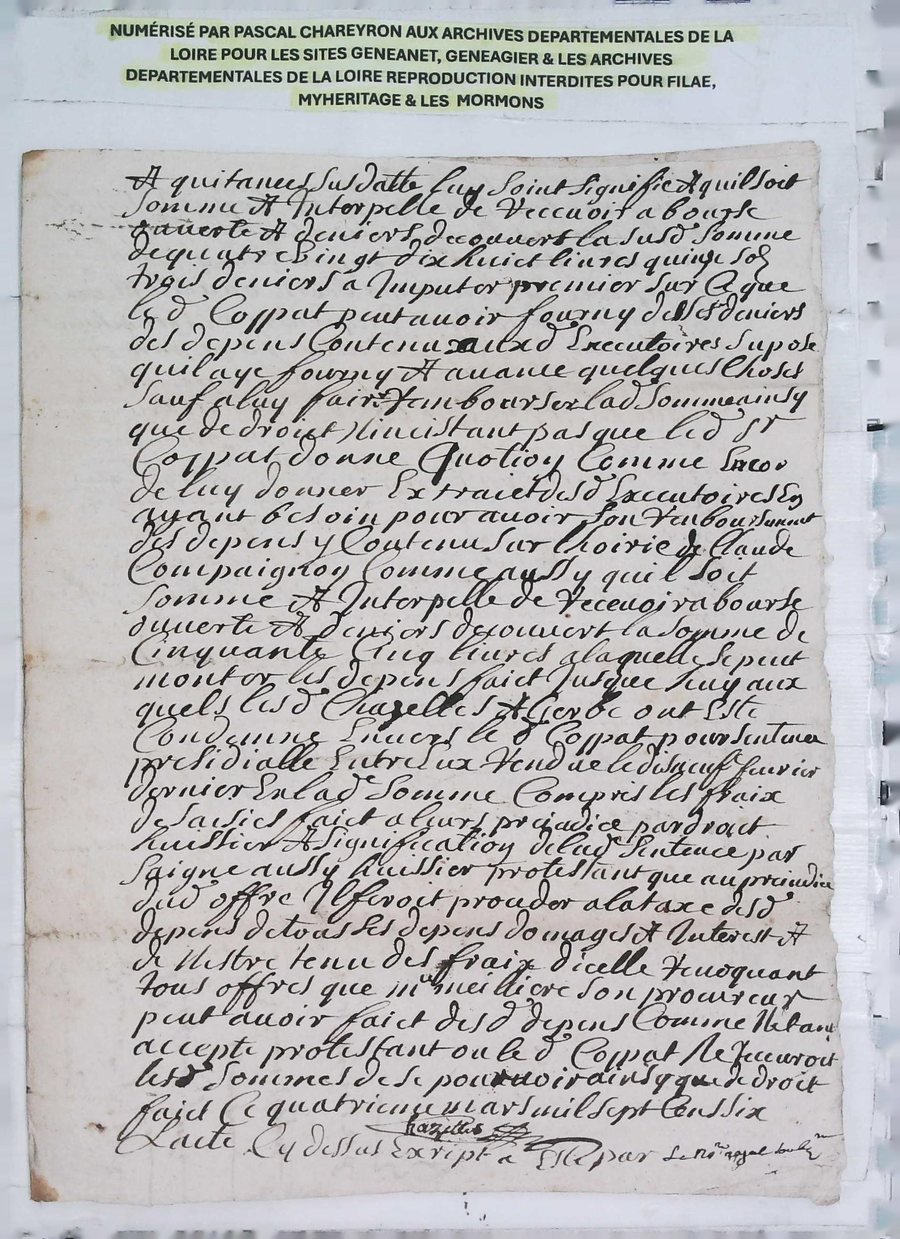 NUMÉRISÉ PAR PASCAL CHAREYRON AUX ARCHIVES DEPARTEMENTALES DE LA
LOIRE POUR LES SITES GENEANET, GENEAGIER & LES ARCHIVES
DEPARTEMENTALES DE LA LOIRE REPRODUCTION INTERDITES POUR FILAE,
MYHERITAGE & LES MORMONS
Et quitances susdatte luy soint signiffie Et quil soit
somme Et Interpelle de Reccuoir a bourse
ouuerte Et deniers decouuert la susd somme
de quatre vingt dix huict liures quinze sol
trois deniers a Imputer premier sur Ce que
le d Coppat peut auoir fourny de ses deniers
des depens Contenu aux d Executoires supose
quil aye fourny Et auance quelques Choses
sauf a luy faire Rembourser lad somme ainsy
que de droict Nincistant pas que led sr
Coppat donne Quotion Comme Encor
de luy donner Extraict des d Executoires En
ayant besoin pour auoir son Remboursement
des depens y Contenu sur lhoirie de Claude
Compaignon Comme aussy quil soit
somme Et Interpelle de Receuoir a bourse
ouuerte Et deniers decouuert la somme de
Cinquante Cinq liures a laquelle se peut
monter les depens faict Jusque huy aux
quels les d Chazelles Et Gerbe ont Este
Condemne Enuers le d Coppat pour sentence
presidialle Entre Eux Rendue le feurier
dernier En lad somme Compres les fraix
de saisies faict a leurs preiudice par droict
huissier Et signification de lad sentence par
saigne aussy huissier protestant que au preiudice
dud offre Il feroit proceder a la taxe des d
depens de tous ses depens domages Et Interest Et
de Nestre tenu des fraix dicelle Reuoquant
tous offres que me meilliere son procureur
peut auoir faict des d depens Comme Netant
accepte protestant ou le d Coppat Ne Receuroit
les d sommes de se pouruoir ainsy que de droit
faict Ce quatrieme mars mil sept Cens six
Chazelles
Lacte Cy dessus Exript a Este par